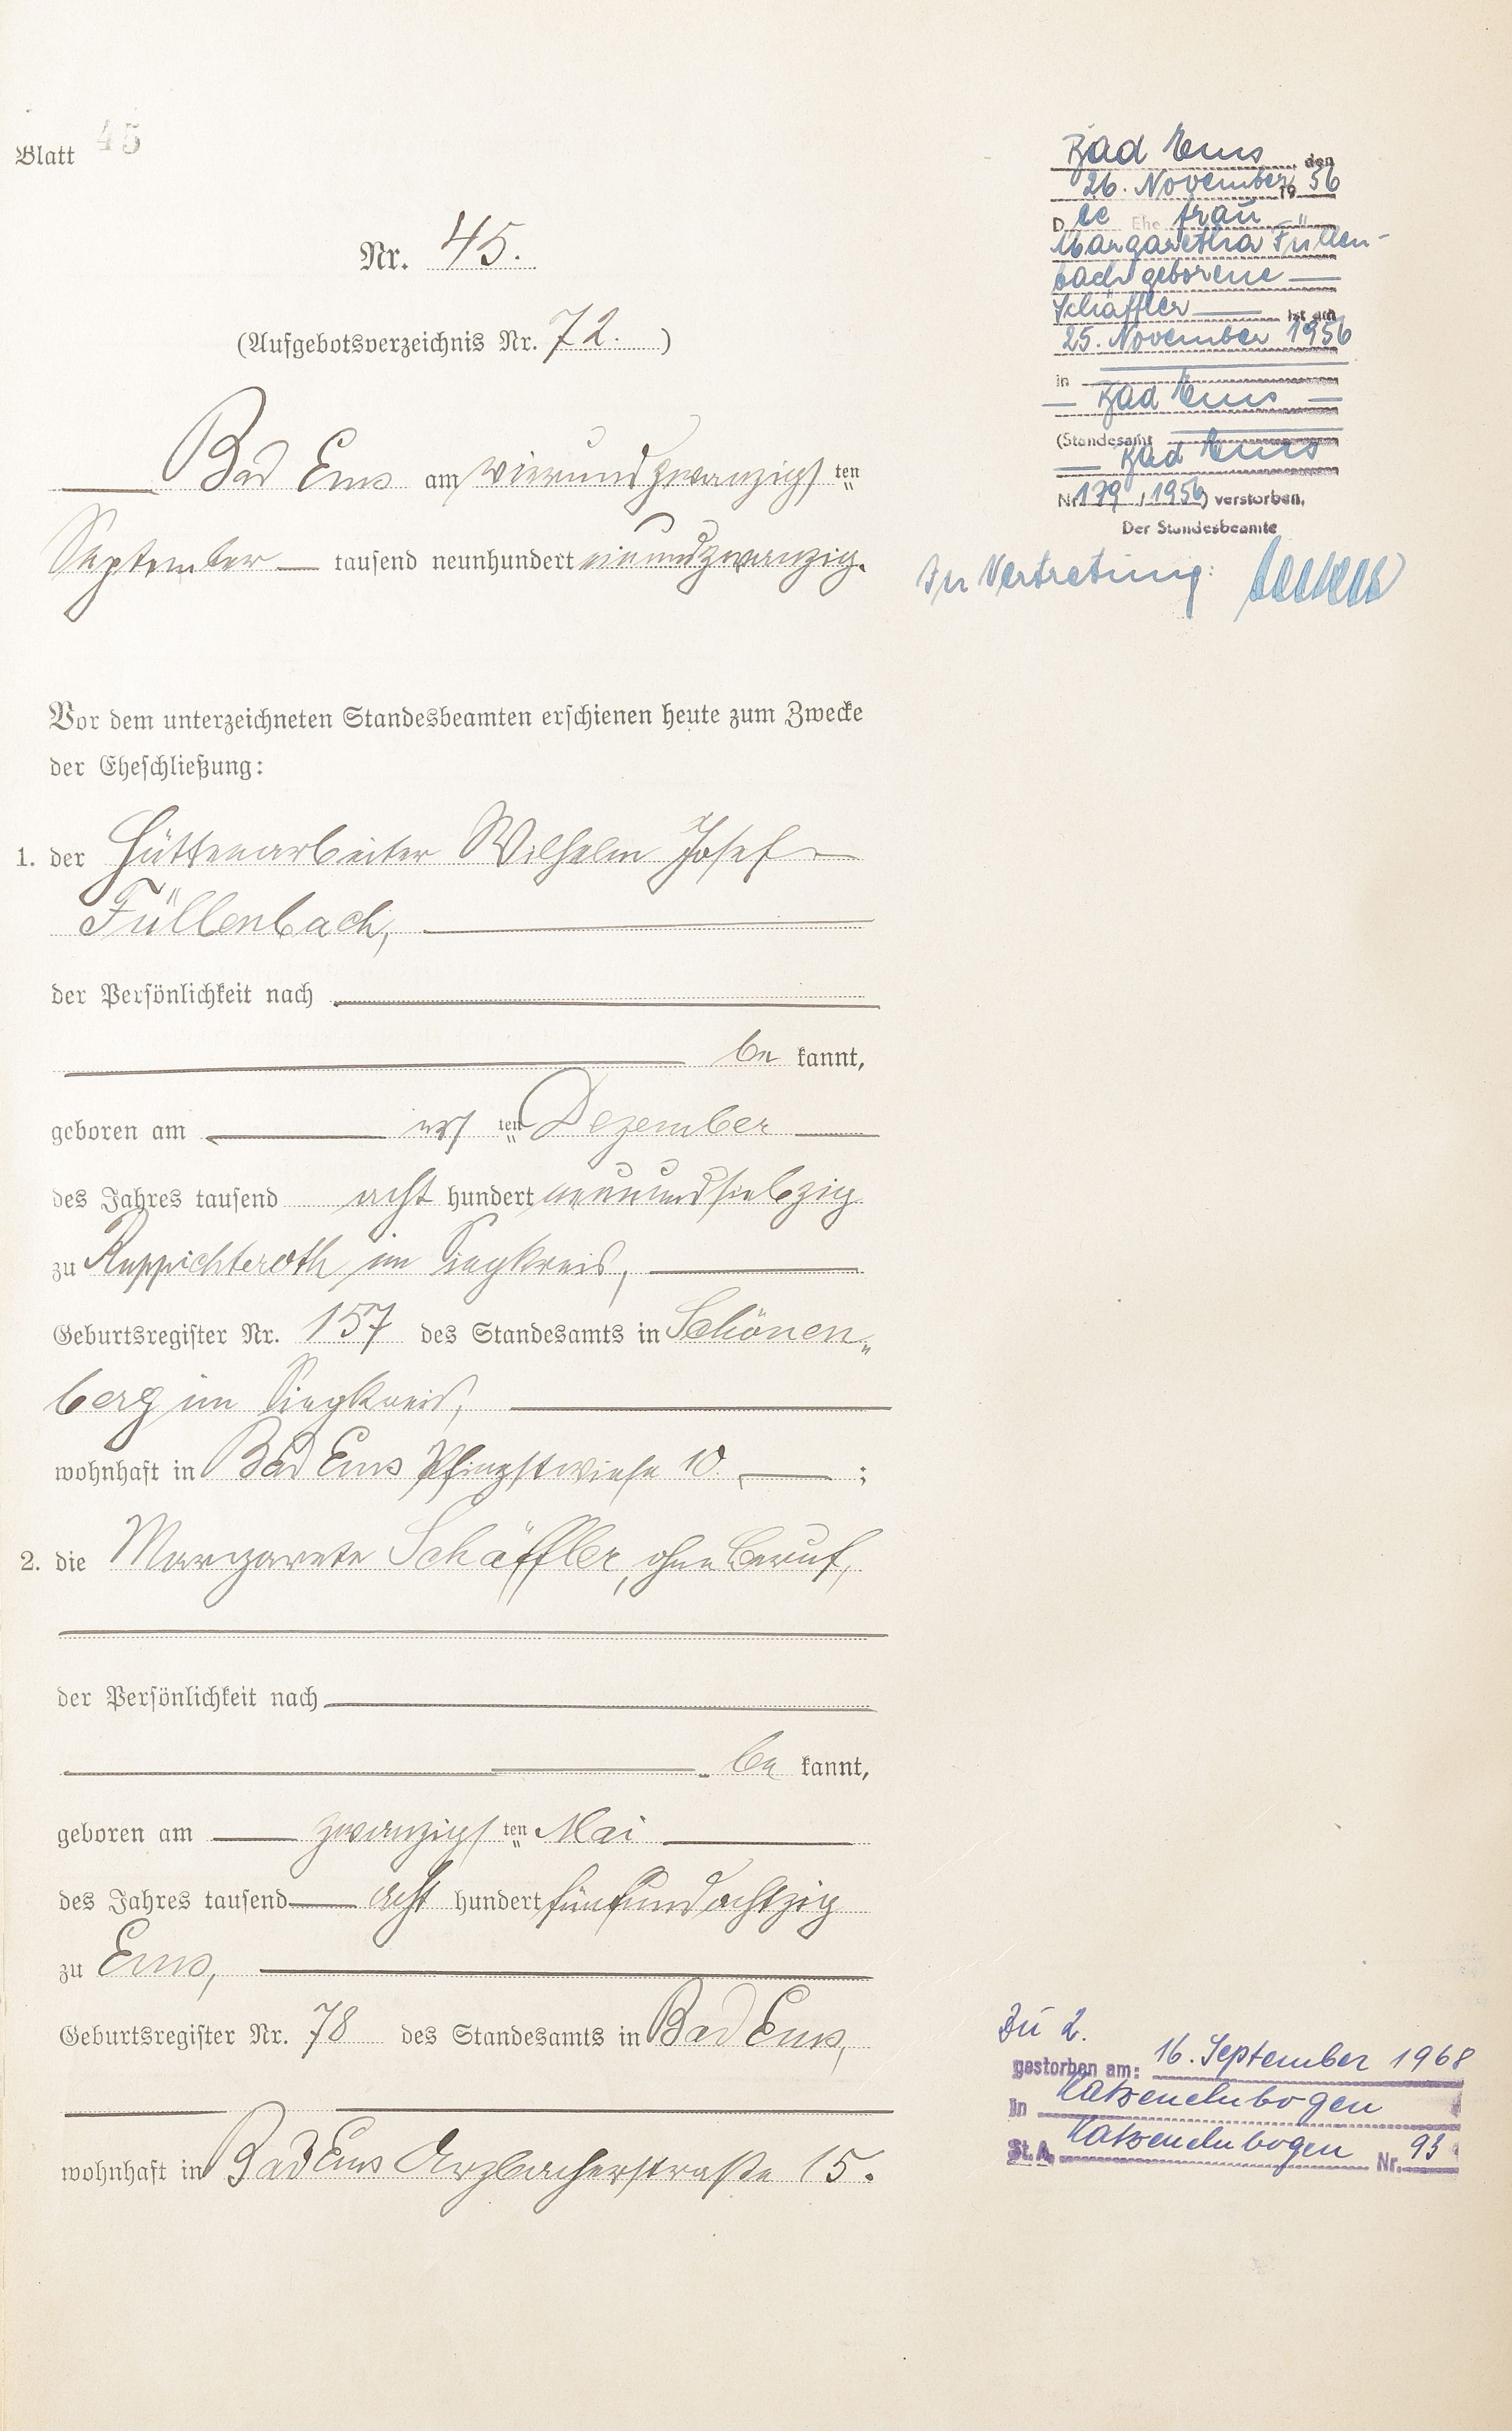 Blatt 45
Nr. 45.
(Aufgebotsverzeichnis Nr. 72. )
Bad Ems am vierundzwanzigsten
September tausend neunhundert einundzwanzig.
Vor dem unterzeichneten Standesbeamten erschienen heute zum Zwecke
der Eheschließung:
1. der Hüttenarbeiter Wilhelm Josef
Füllenbach,
der Persönlichkeit nach
be kannt,
geboren am ersten Dezember
des Jahres tausend acht hundert neunundsiebzig
zu Ruppichteroth im Siegkreis,
Geburtsregister Nr. 157 des Standesamts in Schönen„
berg im Siegkreis,
wohnhaft in Bad Ems Pfingstwiese 10. ;
2. die Margarete Schäffler, ohne Beruf,
der Persönlichkeit nach
be kannt,
geboren am zwanzigsten Mai
des Jahres tausend acht hundert fünfundachtzig
zu Ems,
Geburtsregister Nr. 78 des Standesamts in Bad Ems,
wohnhaft in Bad Ems Arzbacherstraße 15.
Bad Ems, den
26. November 1956
Die Ehefrau
Margaretha Füllen-
bach geborene
Schäffler ist am
25. November 1956
in
Bad Ems
(Standesamt
Bad Ems
Nr. 179 / 1956) verstorben.
Der Standesbeamte
In Vertretung:
Zu 2.
gestorben am: 16. September 1968
in Katzenelnbogen
St.A. Katzenelnbogen Nr. 93